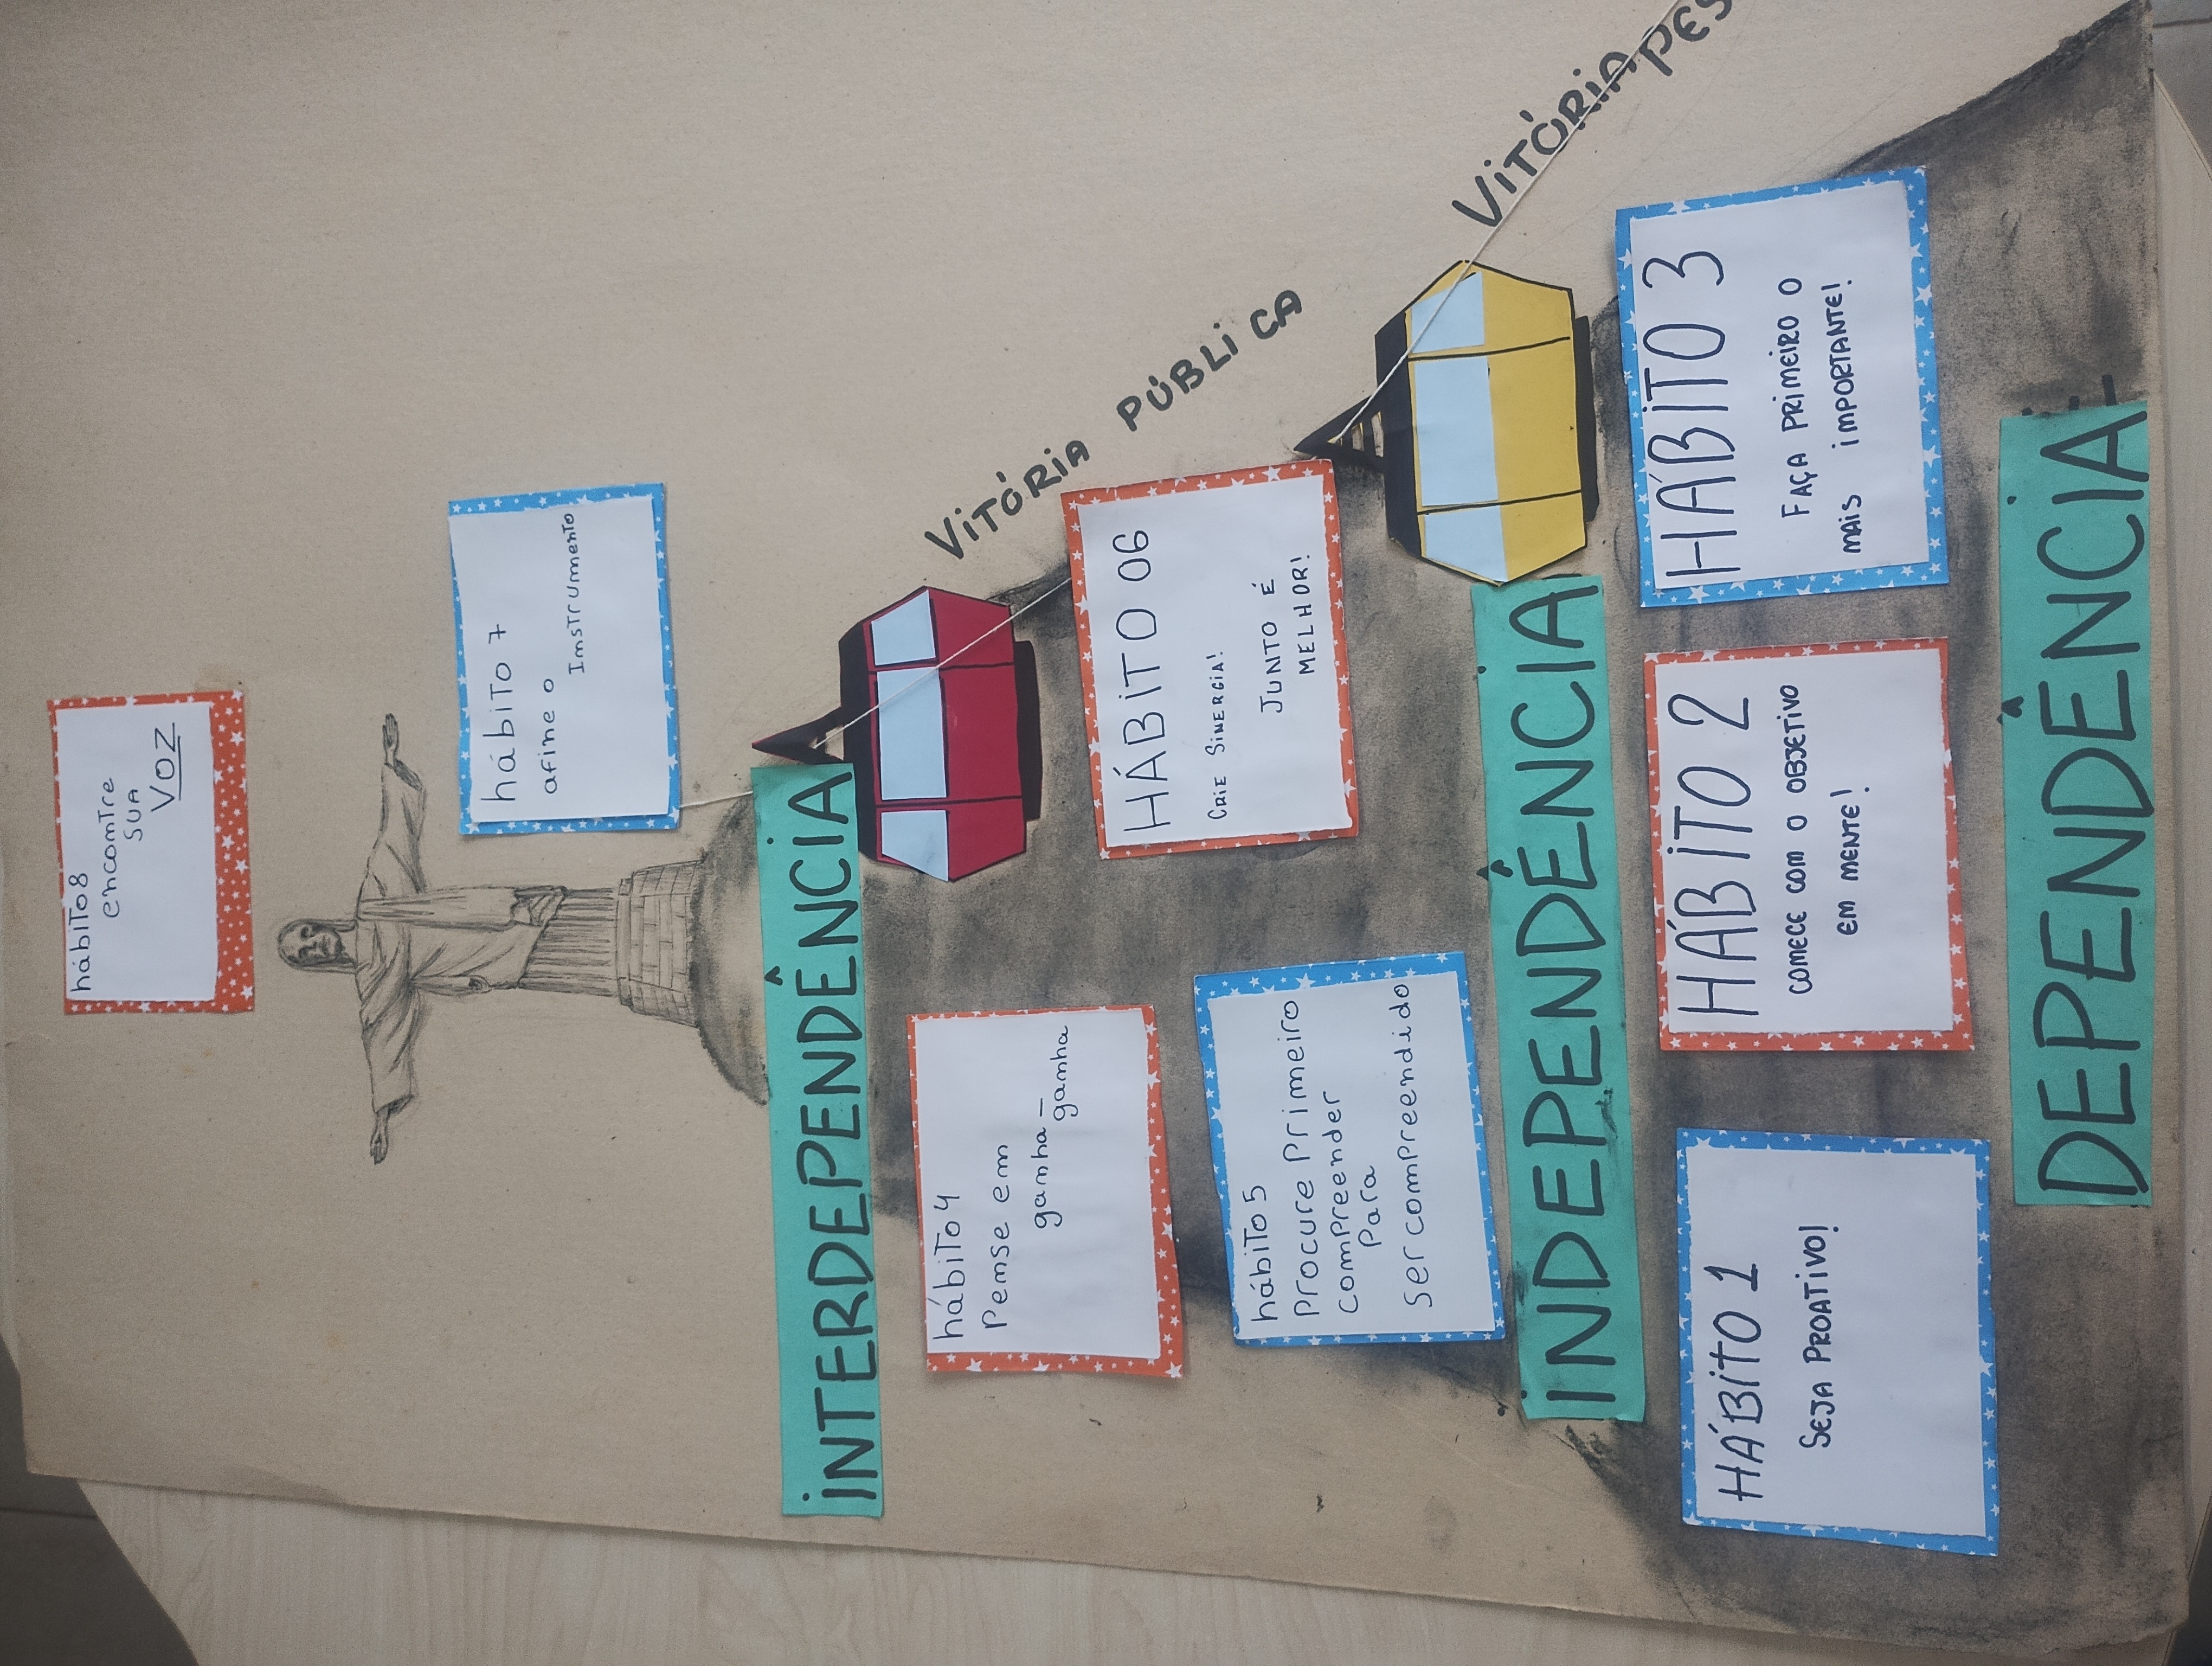 hábito 8
encontre
sua
voz
hábito 7
afine o
Instrumento
INTERDEPENDÊNCIA
VITÓRIA PÚBLICA
hábito 4
Pense em
ganha -
ganha
HÁBITO 06
CRIE SINERGIA!
JUNTO É
MELHOR!
hábito 5
Procure Primeiro
compreender
Para
ser compreendido
INDEPENDÊNCIA
VITÓRIA PES
HÁBITO 1
SEJA PROATIVO!
HÁBITO 2
COMECE COM O OBJETIVO
EM MENTE!
HÁBITO 3
FAÇA PRIMEIRO O
MAIS IMPORTANTE!
DEPENDÊNCIA